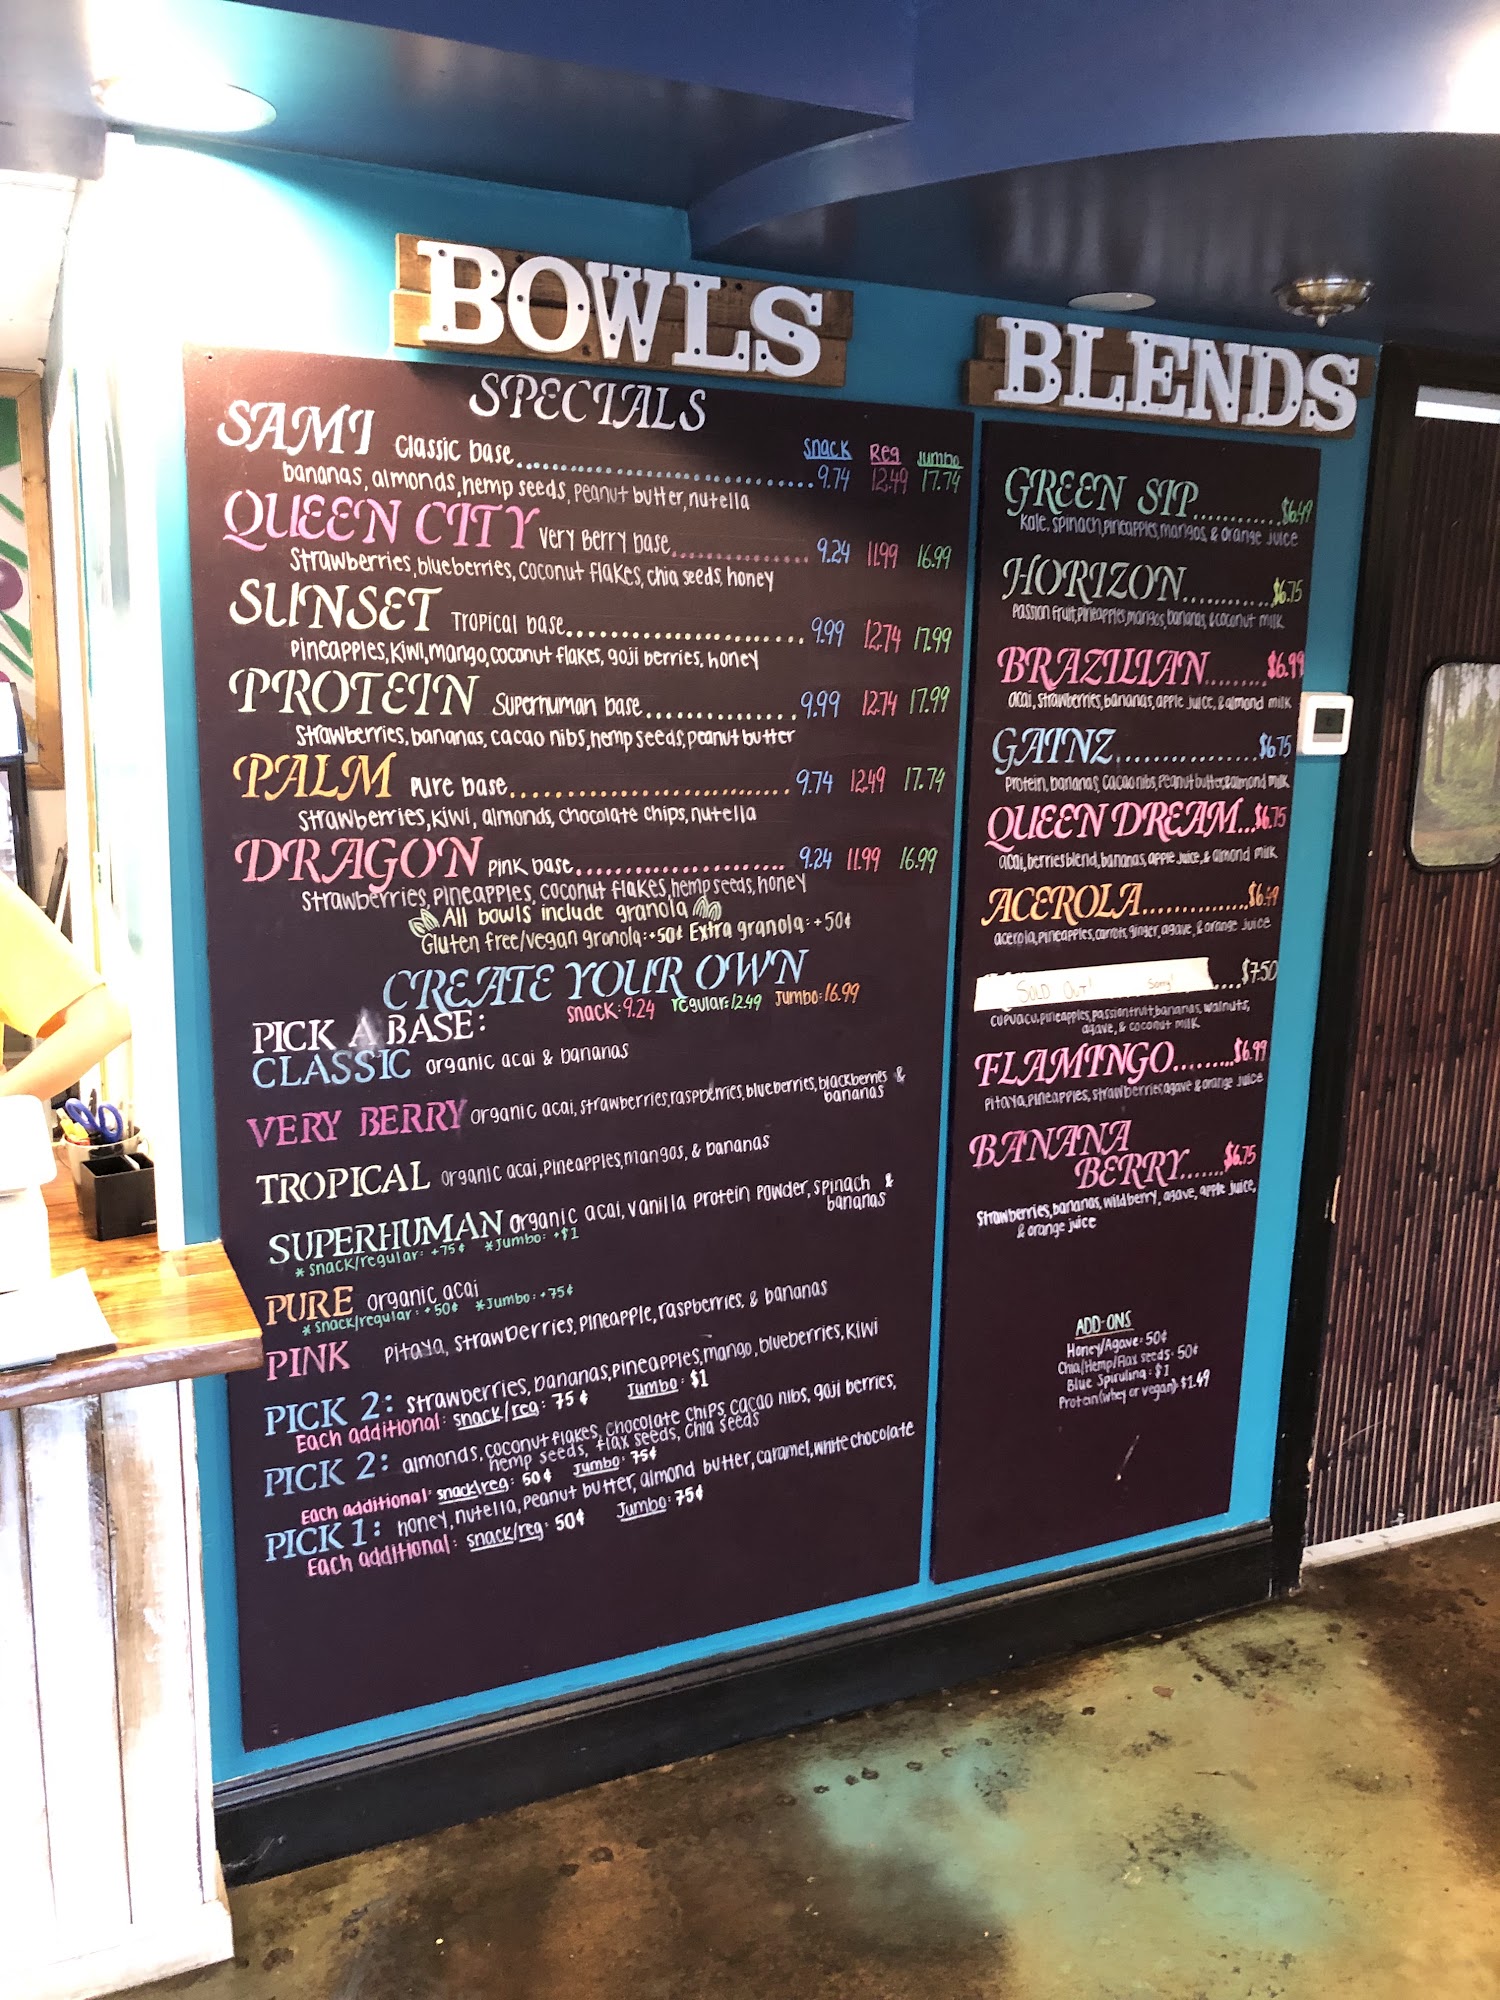 BOWLS
SPECIALS
Snack Reg Jumbo
SAMI Classic base 9.74 12.49 17.74
bananas, almonds, hemp seeds, peanut butter, nutella
QUEEN CITY Very Berry base 9.24 11.99 16.99
Strawberries, blueberries, coconut flakes, chia seeds, honey
SUNSET Tropical base 9.99 12.74 17.99
pineapples, kiwi, mango, coconut flakes, goji berries, honey
PROTEIN Superhuman base 9.99 12.74 17.99
Strawberries, bananas, cacao nibs, hemp seeds, peanut butter
PALM Pure base 9.74 12.49 17.74
Strawberries, kiwi, almonds, chocolate chips, nutella
DRAGON Pink base 9.24 11.99 16.99
Strawberries, pineapples, coconut flakes, hemp seeds, honey
All bowls include granola
Gluten free/vegan granola: +50¢ Extra granola: +50¢
CREATE YOUR OWN
snack: 9.24 regular: 12.49 Jumbo: 16.99
PICK A BASE:
CLASSIC organic acai & bananas
VERY BERRY organic acai, strawberries, raspberries, blueberries, blackberries &
bananas
TROPICAL organic acai, pineapples, mangos, & bananas
SUPERHUMAN organic acai, vanilla protein powder, spinach &
bananas
* snack/regular: +75¢ *Jumbo: +$1
PURE organic acai
* snack/regular: +50¢ *Jumbo: +75¢
PINK pitaya, strawberries, pineapple, raspberries, & bananas
PICK 2: strawberries, bananas, pineapples, mango, blueberries, kiwi
Each additional: snack/reg: 75¢ Jumbo: $1
PICK 2: almonds, coconut flakes, chocolate chips, cacao nibs, goji berries,
hemp seeds, flax seeds, chia seeds
Each additional: snack/reg: 50¢ Jumbo: 75¢
PICK 1: honey, nutella, peanut butter, almond butter, caramel, white chocolate
Each additional: snack/reg: 50¢ Jumbo: 75¢
BLENDS
GREEN SIP $6.49
Kale, spinach, pineapples, mangos, & orange juice
HORIZON $6.75
Passion fruit, pineapples, mangos, bananas, & coconut milk
BRAZILIAN $6.99
acai, strawberries, bananas, apple juice, & almond milk
GAINZ $6.75
Protein, bananas, cacao nibs, peanut butter, & almond milk
QUEEN DREAM $6.75
acai, berries blend, bananas, apple juice, & almond milk
ACEROLA $6.49
acerola, pineapples, carrots, ginger, agave, & orange juice
SOLD OUT! Sorry! $7.50
cupuacu, pineapples, passionfruit, bananas, walnuts,
agave, & coconut milk
FLAMINGO $6.99
pitaya, pineapples, strawberries, agave & orange juice
BANANA
BERRY $6.75
Strawberries, bananas, wildberry, agave, apple juice,
& orange juice
ADD-ONS
Honey/Agave: 50¢
Chia/Hemp/Flax seeds: 50¢
Blue Spirulina: $1
Protein (whey or vegan): $1.49